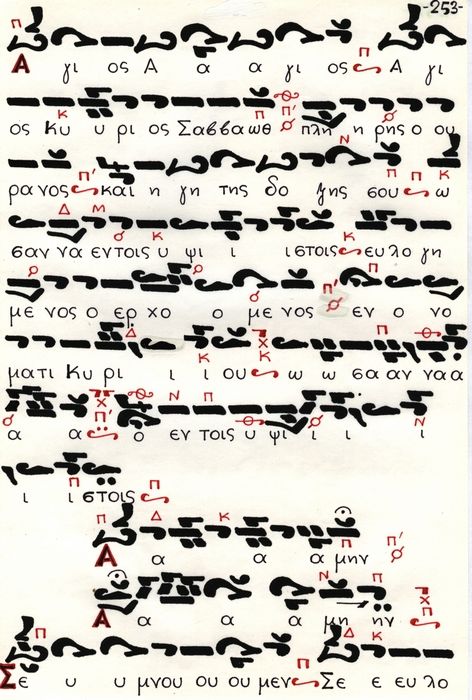 -253-
Α γι ος Α α α γι ος Α γι
ος Κυ υ ρι ος Σαββαωθ πλη η ρης ο ου
ρα νος και η γη της δο ξης σου ω
σαν να εντοις υ ψι ι ιστοις ευ λο γη
με νος ο ερ χο ο με νος εν ο νο
ματι Κυ ρι ι ι ου ω ω σα αν ναα
α α ο εν τοις υ ψι ι ι ι
ι ι στοις
Α α α α μην
Α α α α μη ην
Σε υ υ μνου ου ου μεν Σε ε ευ λο